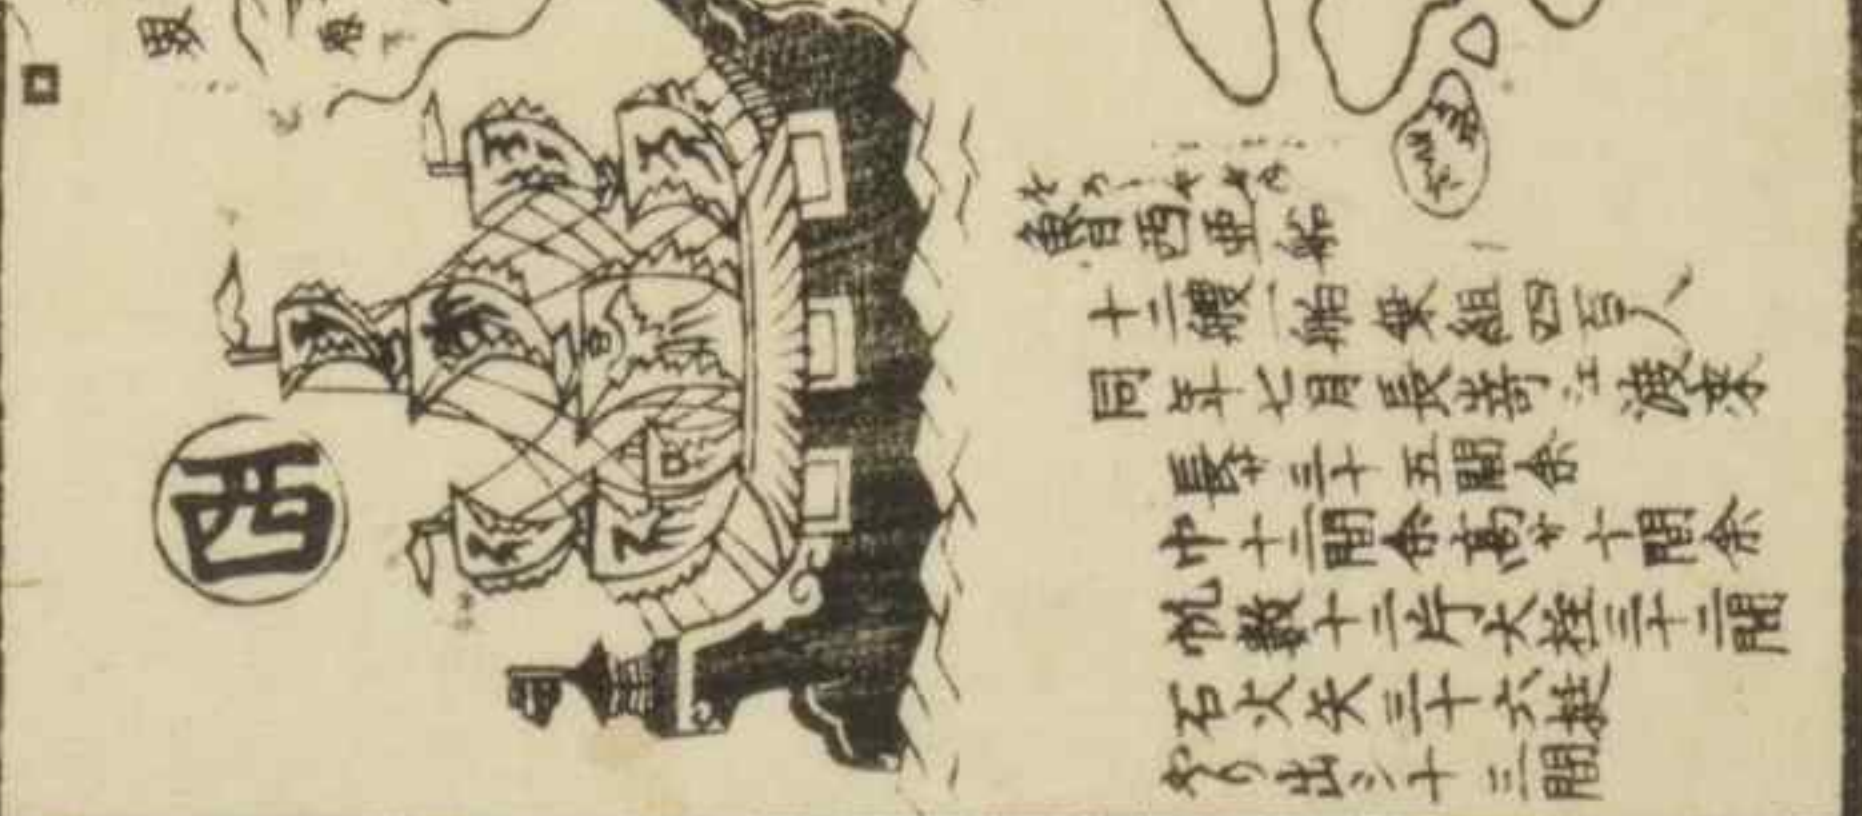 西
魯西亜船
十二艘一艘乗組四百人
同年七月長崎江渡来
長サ三十五間余
巾十二間余高サ十間余
帆数十二片大柱三十二間
石火矢三十六挺
やり出シ十三間